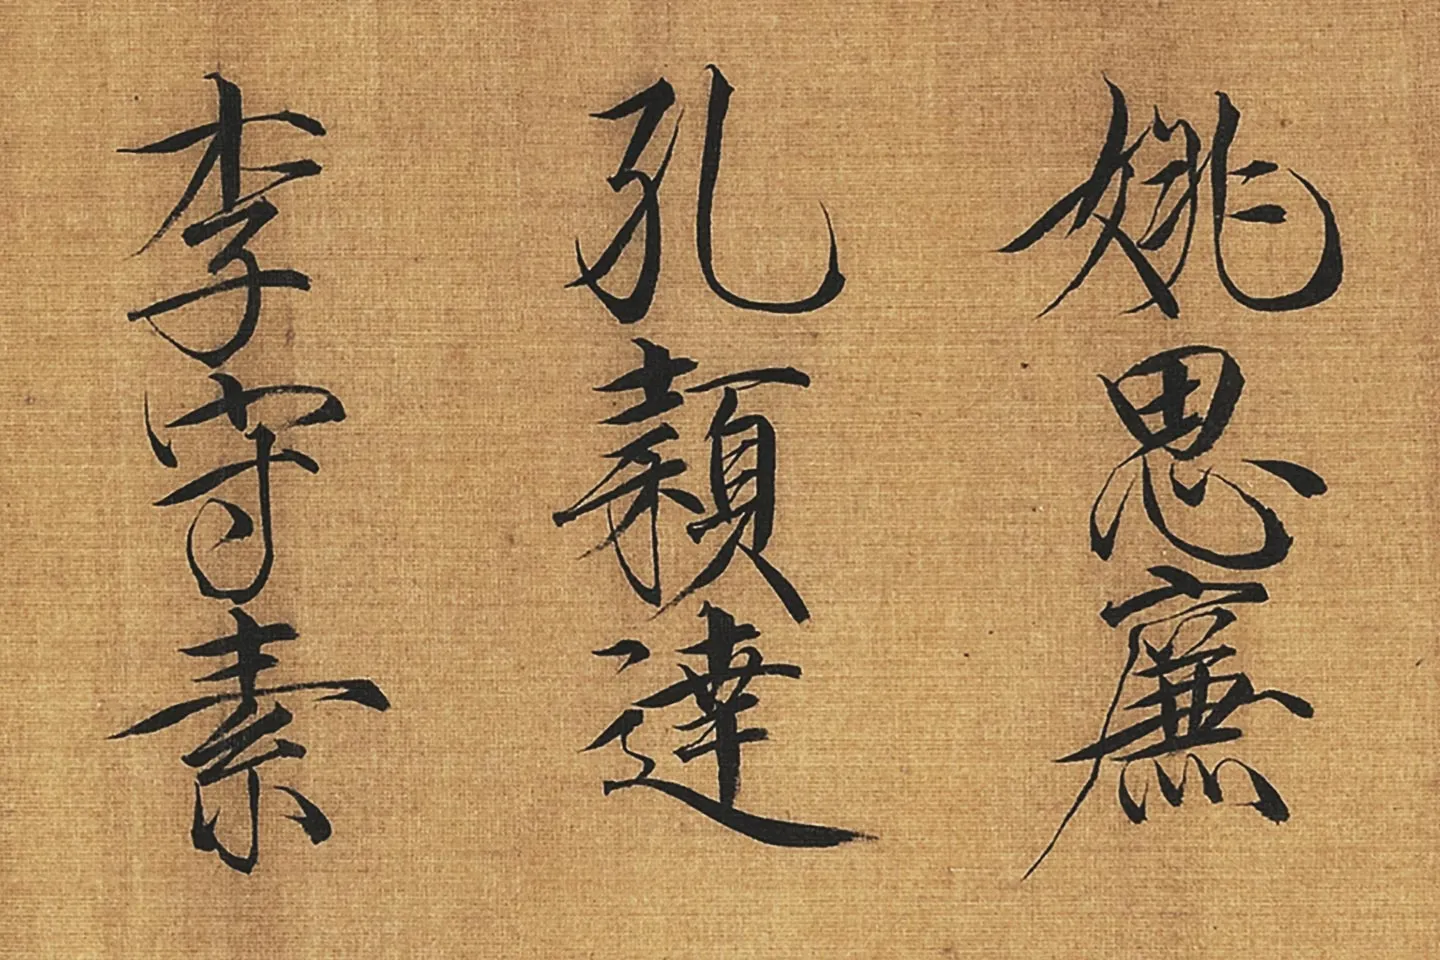 姚思廉
孔穎達
李守素